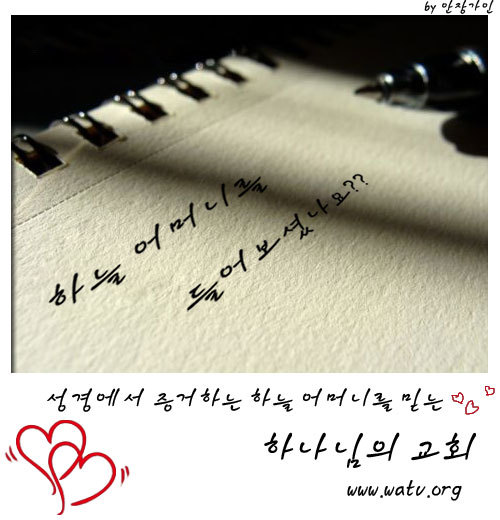 by 안장가인
하늘 어머니를
들어보셨나요??
성경에서 증거하는 하늘 어머니를 믿는
하나님의 교회
www.watv.org